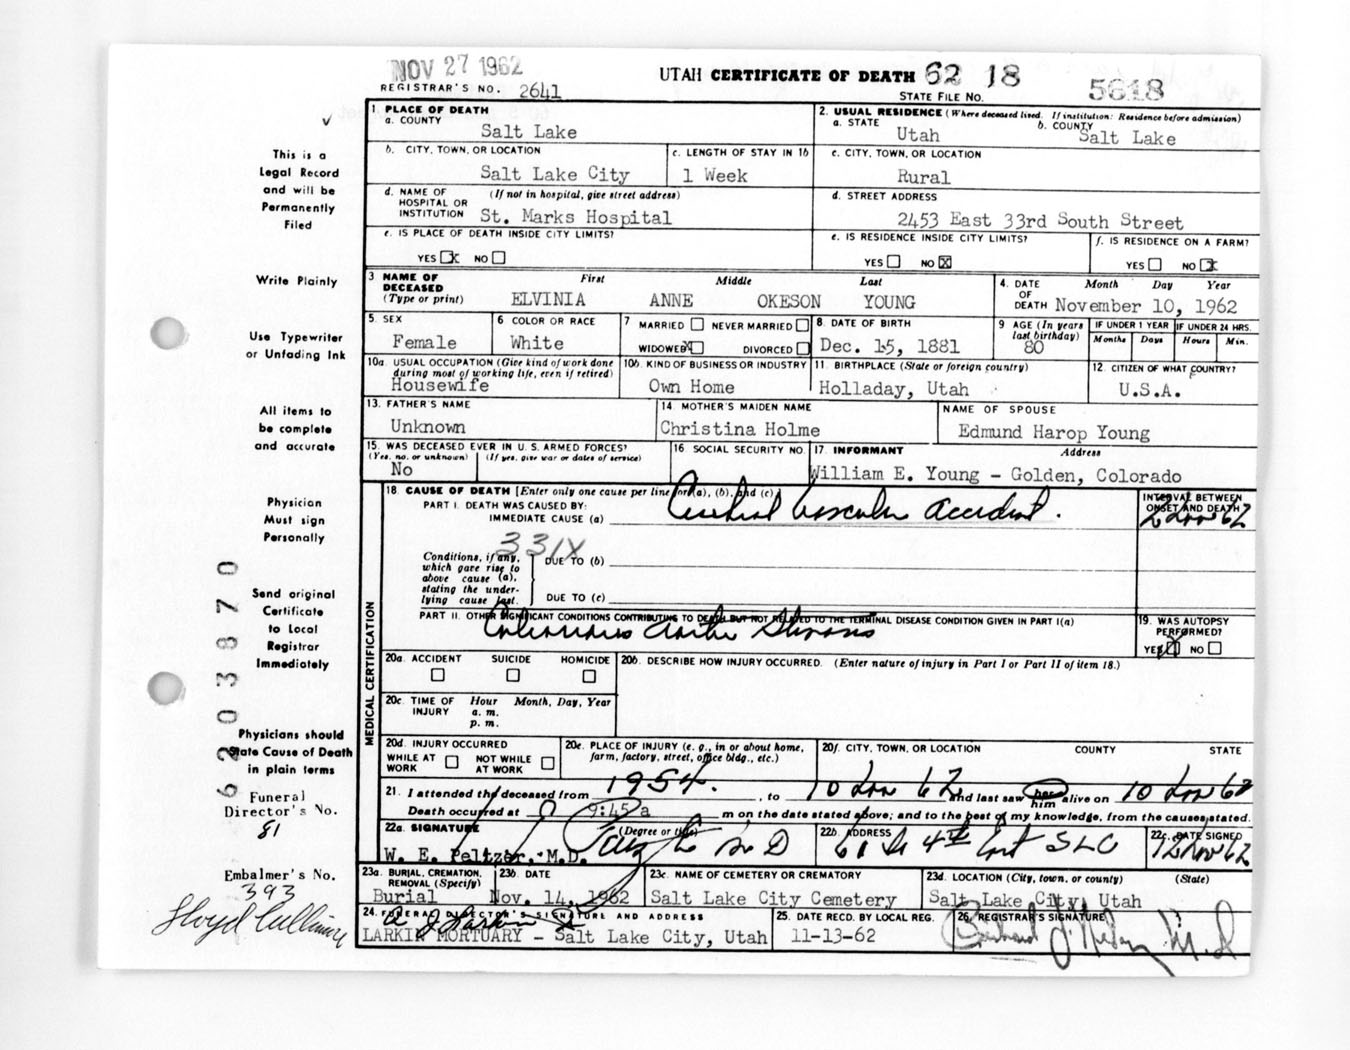 NOV 27 1962
UTAH CERTIFICATE OF DEATH 62 18 5618
REGISTRAR'S NO. 2641
STATE FILE NO.
This is a
Legal Record
and will be
Permanently
Filed
Write Plainly
Use Typewriter
or Unfading Ink
All items to
be complete
and accurate
Physician
Must sign
Personally
Send original
Certificate
to Local
Registrar
Immediately
Physicians should
State Cause of Death
in plain terms
Funeral
Director's No.
81
Embalmer's No.
393
Lloyd Cullimore
6 2 0 3 8 7 0
1. PLACE OF DEATH
a. COUNTY
Salt Lake
2. USUAL RESIDENCE (Where deceased lived. If institution: Residence before admission)
a. STATE
Utah
b. COUNTY
Salt Lake
b. CITY, TOWN, OR LOCATION
Salt Lake City
c. LENGTH OF STAY IN 1b
1 Week
c. CITY, TOWN, OR LOCATION
Rural
d. NAME OF HOSPITAL OR INSTITUTION
(If not in hospital, give street address)
St. Marks Hospital
d. STREET ADDRESS
2453 East 33rd South Street
e. IS PLACE OF DEATH INSIDE CITY LIMITS?
YES X NO
e. IS RESIDENCE INSIDE CITY LIMITS?
YES NO X
f. IS RESIDENCE ON A FARM?
YES NO X
3 NAME OF DECEASED (Type or print)
First Middle Last
ELVINIA ANNE OKESON YOUNG
4. DATE OF DEATH
Month Day Year
November 10, 1962
5. SEX
Female
6 COLOR OR RACE
White
7 MARRIED NEVER MARRIED
WIDOWED X DIVORCED
8. DATE OF BIRTH
Dec. 15, 1881
9 AGE (In years last birthday)
80
IF UNDER 1 YEAR
Months Days
IF UNDER 24 HRS.
Hours Min.
10a. USUAL OCCUPATION (Give kind of work done during most of working life, even if retired)
Housewife
10b. KIND OF BUSINESS OR INDUSTRY
Own Home
11. BIRTHPLACE (State or foreign country)
Holladay, Utah
12. CITIZEN OF WHAT COUNTRY?
U.S.A.
13. FATHER'S NAME
Unknown
14 MOTHER'S MAIDEN NAME
Christina Holme
NAME OF SPOUSE
Edmund Harop Young
15. WAS DECEASED EVER IN U. S. ARMED FORCES?
(Yes, no, or unknown) (If yes, give war or dates of service)
No
16 SOCIAL SECURITY NO.
17. INFORMANT Address
William E. Young - Golden, Colorado
MEDICAL CERTIFICATION
18. CAUSE OF DEATH [Enter only one cause per line for (a), (b), and (c).]
PART I. DEATH WAS CAUSED BY:
IMMEDIATE CAUSE (a)
Cerebral Vascular accident.
INTERVAL BETWEEN ONSET AND DEATH
2 Nov 62
331X
Conditions, if any, which gave rise to above cause (a), stating the underlying cause last.
DUE TO (b)
DUE TO (c)
PART II. OTHER SIGNIFICANT CONDITIONS CONTRIBUTING TO DEATH BUT NOT RELATED TO THE TERMINAL DISEASE CONDITION GIVEN IN PART I(a)
19. WAS AUTOPSY PERFORMED?
YES X NO
20a. ACCIDENT SUICIDE HOMICIDE
20b. DESCRIBE HOW INJURY OCCURRED. (Enter nature of injury in Part I or Part II of item 18.)
20c. TIME OF INJURY
Hour Month, Day, Year
a. m.
p. m.
20d. INJURY OCCURRED
WHILE AT WORK NOT WHILE AT WORK
20e. PLACE OF INJURY (e. g., in or about home, farm, factory, street, office bldg., etc.)
20f. CITY, TOWN, OR LOCATION COUNTY STATE
21. I attended the deceased from 1954. , to 10 Nov 62 and last saw her him alive on 10 Nov 62
Death occurred at 9:45 a m on the date stated above; and to the best of my knowledge, from the causes stated.
22a. SIGNATURE (Degree or title)
W. E. Peltzer, M.D.
M D
22b. ADDRESS
4th East SLC
22c. DATE SIGNED
12 Nov 62
23a. BURIAL, CREMATION, REMOVAL (Specify)
Burial
23b. DATE
Nov. 14, 1962
23c. NAME OF CEMETERY OR CREMATORY
Salt Lake City Cemetery
23d. LOCATION (City, town, or county) (State)
Salt Lake City, Utah
24. FUNERAL DIRECTOR'S SIGNATURE AND ADDRESS
LARKIN MORTUARY - Salt Lake City, Utah
25. DATE RECD. BY LOCAL REG.
11-13-62
26. REGISTRAR'S SIGNATURE
M.D